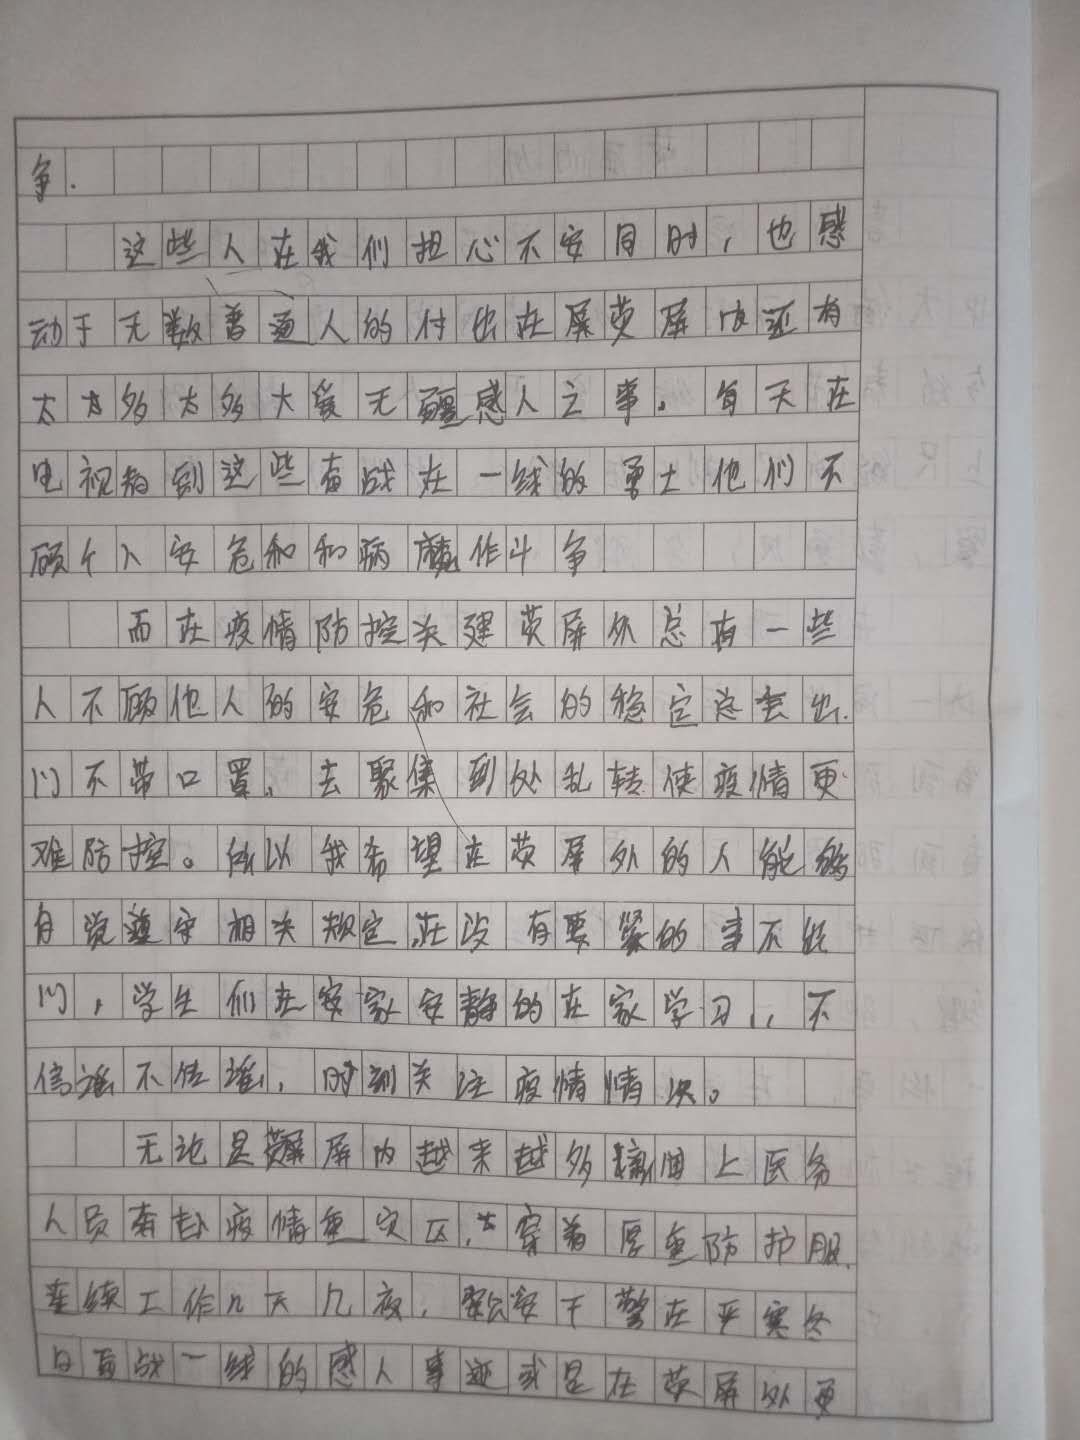 争.
这些人在我们担心不安同时,也感
动于无数普通人的付出在屏荧屏内还有
太太多太多大爱无疆感人之事。每天在
电视看到这些奋战在一线的勇士他们不
顾个人安危和和病魔作斗争
而在疫情防控关建荧屏外总有一些
人不顾他人的安危和社会的稳定总去出.
门不带口罩,去聚集到处乱转使疫情更
难防控。所以我希望在荧屏外的人能够
自觉遵守相关规定,在没有要紧的事不出
门,学生们在安家安静的在家学习,,不
信谣不传谣,时刻关注疫情情况。
无论是荧屏屏内越来越多新闻上医务
人员奔赴疫情重灾区,穿着厚重防护服.
连续工作几天几夜,公安干警在严寒冬
日奋战一线的感人事迹或是在荧屏外更